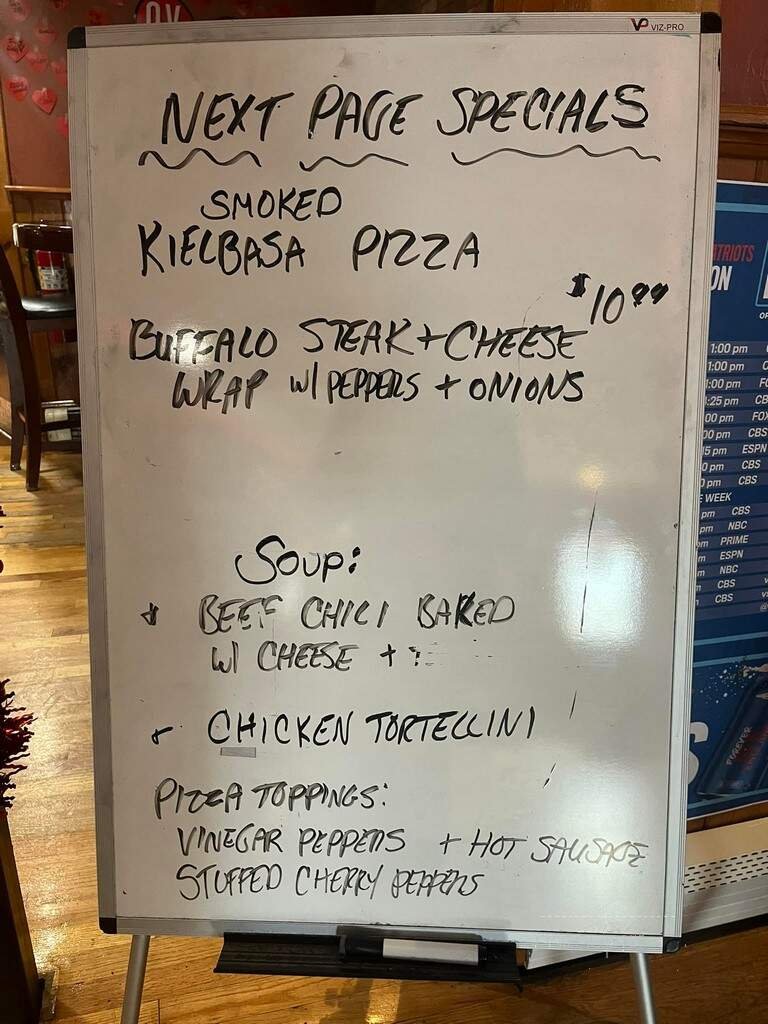 VIZ-PRO
NEXT PAGE SPECIALS
SMOKED
KIELBASA PIZZA
$10.99
BUFFALO STEAK + CHEESE
WRAP W/ PEPPERS + ONIONS
SOUP:
BEEF CHILI BAKED
W/ CHEESE +
CHICKEN TORTELLINI
PIZZA TOPPINGS:
VINEGAR PEPPERS + HOT SAUSAGE
STUFFED CHERRY PEPPERS
ATRIOTS
ON
1:00 pm
1:00 pm
1:00 pm
:25 pm CB
00 pm FOX
00 pm CBS
15 pm ESPN
0 pm CBS
0 pm CBS
E WEEK
pm CBS
pm NBC
pm PRIME
pm ESPN
pm NBC
pm CBS
pm CBS
FOREVER